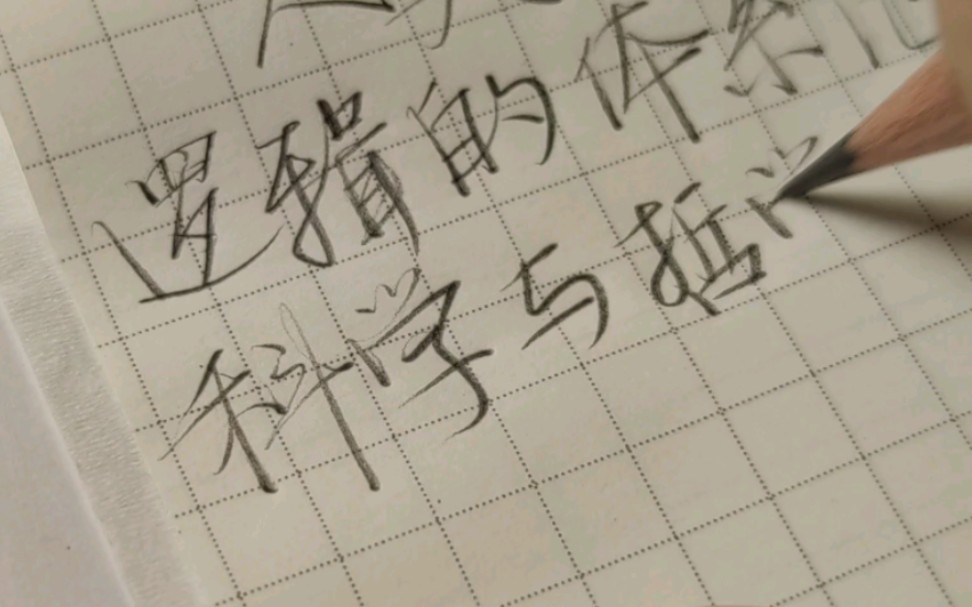 逻辑的体系
科学与哲